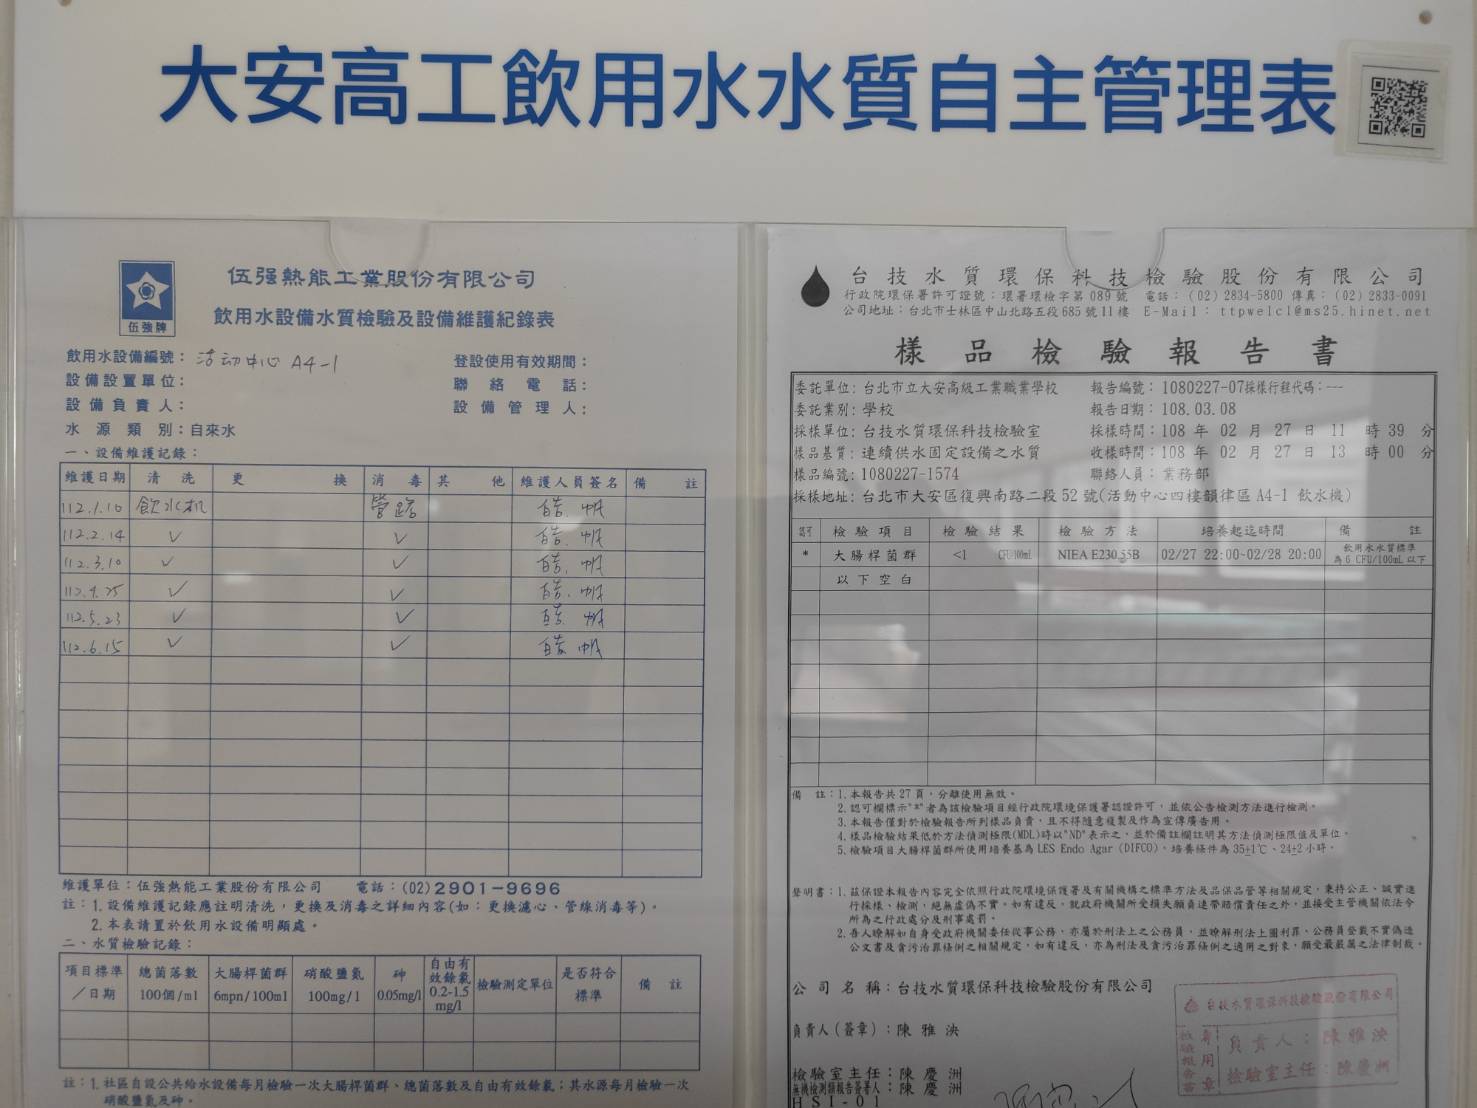 大安高工飲用水水質自主管理表
伍強牌
伍强熱能工業股份有限公司
飲用水設備水質檢驗及設備維護紀錄表
飲用水設備編號：活动中心 A4-1
登設使用有效期間：
設備設置單位：
聯絡電話：
設備負責人：
設備管理人：
水源類別：自來水
一、設備維護記錄：
維護日期 清洗 更換 消毒 其他 維護人員簽名 備註
112.1.10 飲水机 管路
112.2.14 ✓ ✓
112.3.10 ✓ ✓
112.4.25 ✓ ✓
112.5.23 ✓ ✓
112.6.15 ✓ ✓
維護單位：伍強熱能工業股份有限公司 電話：(02)2901-9696
註：1. 設備維護記錄應註明清洗，更換及消毒之詳細內容(如：更換濾心、管線消毒等)。
2. 本表請置於飲用水設備明顯處。
二、水質檢驗記錄：
項目標準／日期 總菌落數 100個/ml 大腸桿菌群 6mpn/100ml 硝酸鹽氮 100mg/l 砷 0.05mg/l 自由有效餘氯 0.2-1.5 mg/l 檢驗測定單位 是否符合標準 備註
註：1. 社區自設公共給水設備每月檢驗一次大腸桿菌群、總菌落數及自由有效餘氯；其水源每月檢驗一次
硝酸鹽氮及砷。
台技水質環保科技檢驗股份有限公司
行政院環保署許可證號：環署環檢字第 089 號 電話：(02) 2834-5800 傳真：(02) 2833-0091
公司地址：台北市士林區中山北路五段 685 號 11 樓 E-Mail：ttpwelcl@ms25.hinet.net
樣品檢驗報告書
委託單位: 台北市立大安高級工業職業學校 報告編號：1080227-07採樣行程代碼：---
委託業別: 學校 報告日期：108.03.08
採樣單位: 台技水質環保科技檢驗室 採樣時間：108 年 02 月 27 日 11 時 39 分
樣品基質: 連續供水固定設備之水質 收樣時間：108 年 02 月 27 日 13 時 00 分
樣品編號: 1080227-1574 聯絡人員：業務部
採樣地址: 台北市大安區復興南路二段 52 號(活動中心四樓韻律區 A4-1 飲水機)
認可 檢驗項目 檢驗結果 檢驗方法 培養起迄時間 備註
* 大腸桿菌群 <1 CFU/100mL NIEA E230.55B 02/27 22:00~02/28 20:00 飲用水水質標準為 6 CFU/100mL 以下
以下空白
備註：1. 本報告共 27 頁，分離使用無效。
2. 認可欄標示"*"者為該檢驗項目經行政院環境保護署認證許可，並依公告檢測方法進行檢測。
3. 本報告僅對於檢驗報告所列樣品負責，且不得隨意複製及作為宣傳廣告用。
4. 樣品檢驗結果低於方法偵測極限(MDL)時以"ND"表示之，並於備註欄註明其方法偵測極限值及單位。
5. 檢驗項目大腸桿菌群所使用培養基為 LES Endo Agar (DIFCO)、培養條件為 35±1℃、24±2 小時。
聲明書：1. 茲保證本報告內容完全依照行政院環境保護署及有關機構之標準方法及品保品管等相關規定，秉持公正、誠實進
行採樣、檢測，絕無虛偽不實。如有違反，就政府機關所受損失願負連帶賠償責任之外，並接受主管機關依法令
所為之行政處分及刑事處罰。
2. 吾人瞭解如自身受政府機關委任從事公務，亦屬於刑法上之公務員，並瞭解刑法上圖利罪、公務員登載不實偽造
公文書及貪污治罪條例之相關規定，如有違反，亦為刑法及貪污治罪條例之適用之對象，願受最嚴厲之法律制裁。
公司名稱：台技水質環保科技檢驗股份有限公司
負責人(簽章)：陳雅泱
檢驗室主任：陳慶洲
無機檢測類報告簽署人：陳慶洲
HSI-01
台技水質環保科技檢驗股份有限公司
檢驗報告專用章
負責人：陳雅泱
檢驗室主任：陳慶洲